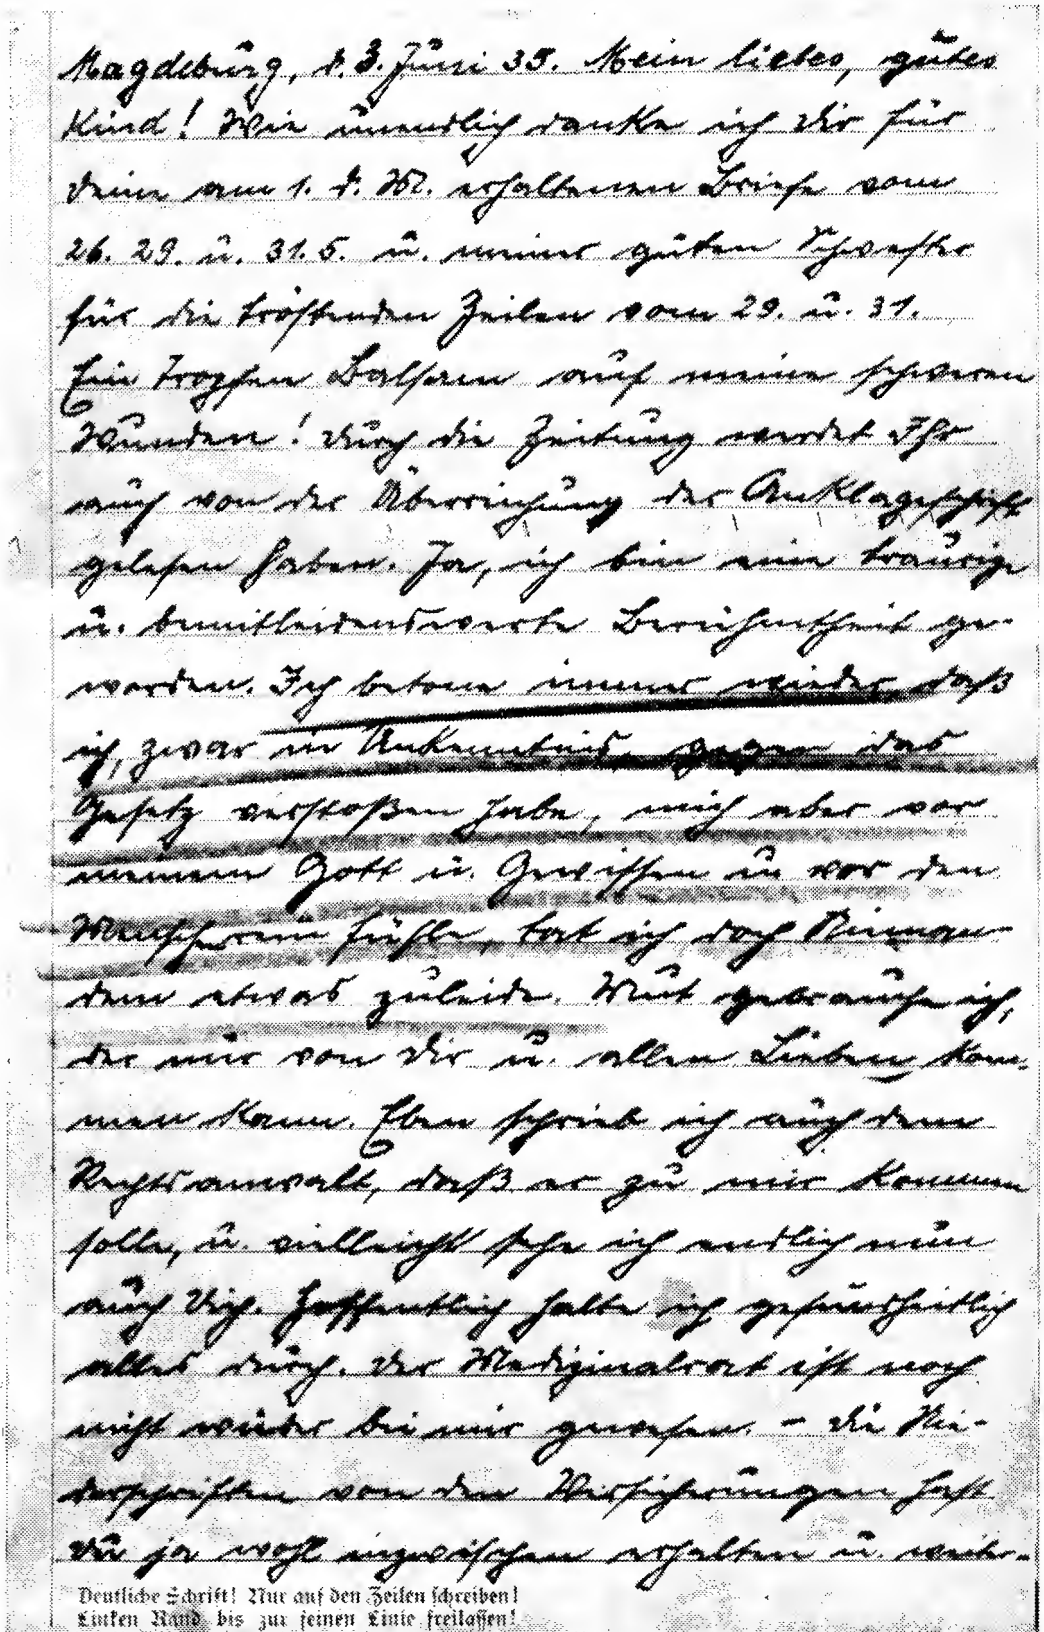 Magdeburg, d. 3. Juni 35. Mein liebes, gutes
Kind! Wie unendlich danke ich Dir für
Deine am 1. d. M. erhaltenen Briefe vom
26. 29. u. 31.5. u. meiner guten Schwester
für die tröstenden Zeilen vom 29. u. 31.
Ein Tropfen Balsam auf meine schweren
Wunden! Durch die Zeitung werdet Ihr
auch von der Überreichung der Anklageschrift
gelesen haben. Ja, ich bin eine traurige
u. bemitleidenswerte Berühmtheit ge-
worden. Ich betone immer wieder, daß
ich, zwar in Unkenntnis, gegen das
Gesetz verstoßen habe, mich aber vor
meinem Gott u. Gewissen u. vor den
Menschen rein fühle, tat ich doch Nieman-
dem etwas zuleide. Mut gebrauche ich,
der mir von Dir u. allen Lieben kom-
men kann. Eben schrieb ich auch dem
Rechtsanwalt, daß er zu mir kommen
solle, u. vielleicht sehe ich endlich nun
auch Dich. Hoffentlich halte ich gesundheitlich
alles durch. Der Medizinalrat ist noch
nicht wieder bei mir gewesen. – Die Nie-
derschriften von den Versicherungen hast
Du ja wohl inzwischen erhalten u. weiter-
Deutliche Schrift! Nur auf den Zeilen schreiben!
Linken Rand bis zur feinen Linie freilassen!